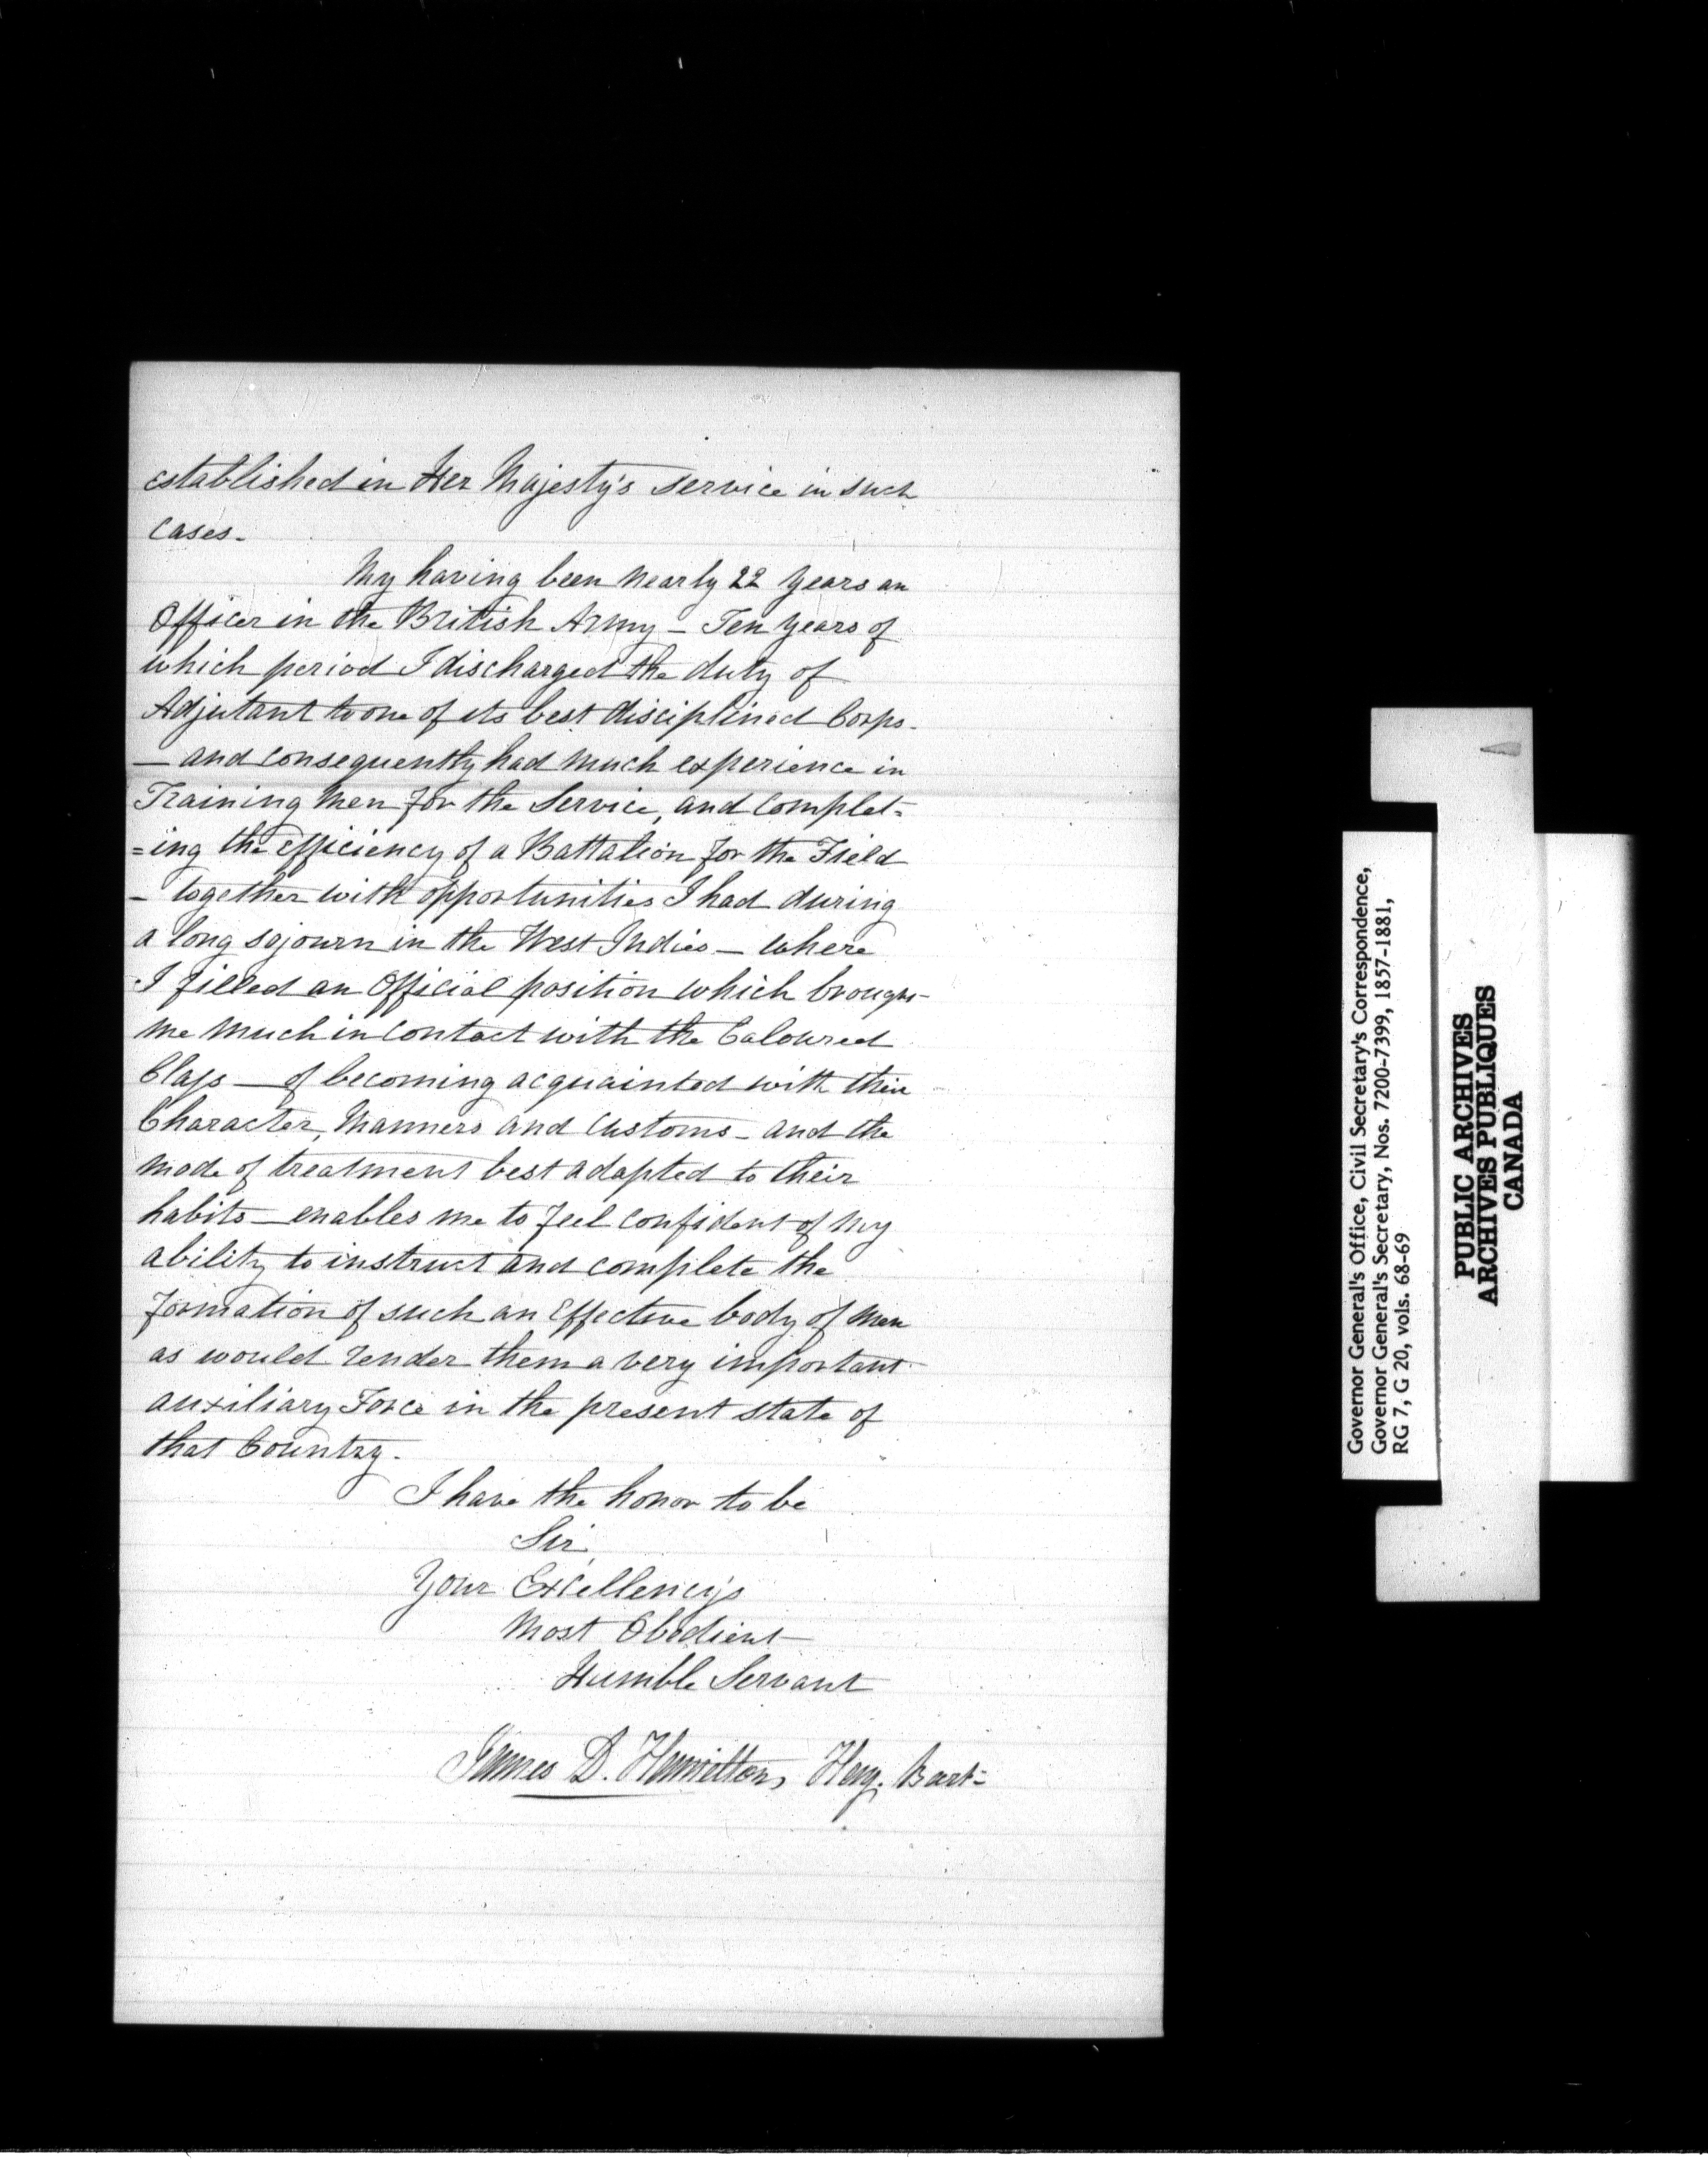 established in Her Majesty's service in such
cases.
My having been nearly 22 years an
Officer in the British Army – Ten years of
which period I discharged the duty of
Adjutant to one of its best disciplined Corps.
— and consequently had much experience in
Training men for the Service, and complet=
=ing the efficiency of a Battalion for the Field
– together with opportunities I had during
a long sojourn in the West Indies – where
I filled an Official position which brought
me much in contact with the Coloured
Class — of becoming acquainted with their
Character, Manners and Customs – and the
mode of treatment best adapted to their
habits — enables me to feel confident of my
ability to instruct and complete the
formation of such an Effective body of men
as would render them a very important
auxiliary Force in the present state of
that Country.
I have the honor to be
Sir,
Your Excellency's
Most Obedient
Humble Servant
James D. Hamilton, Hay. Bart=
Governor General's Office, Civil Secretary's Correspondence,
Governor General's Secretary, Nos. 7200-7399, 1857-1881,
RG 7, G 20, vols. 68-69
PUBLIC ARCHIVES
ARCHIVES PUBLIQUES
CANADA